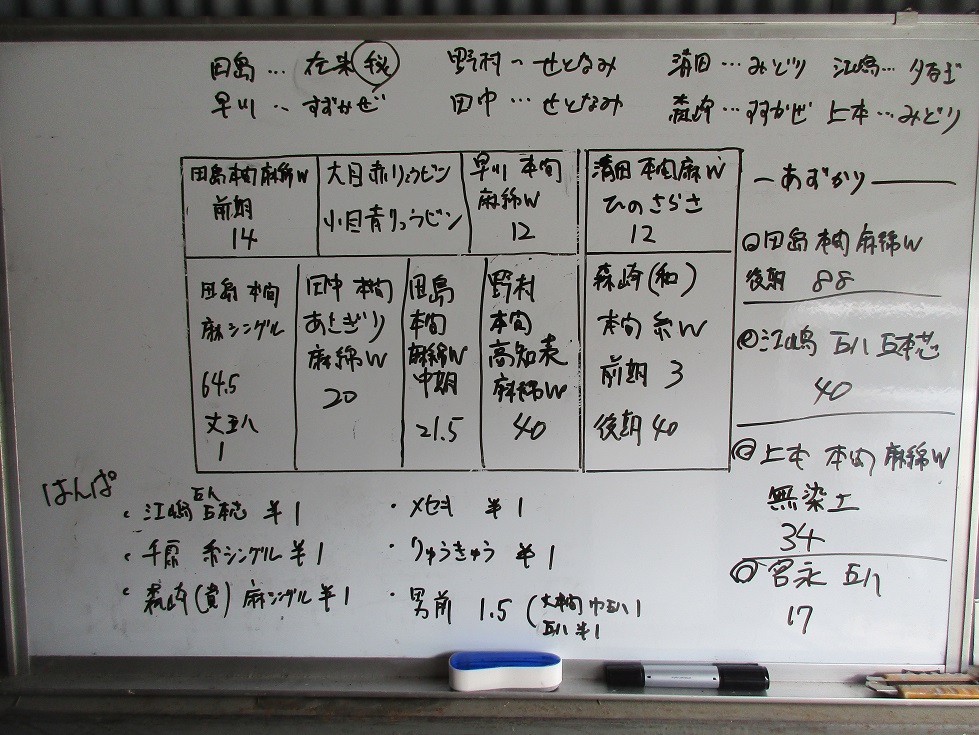 田島…在来㊙ 野村〜せとなみ 清田…みどり 江嶋…夕方
早川…すずかぜ 田中…せとなみ 森崎…すずかぜ 上本…みどり
田島 本間 麻綿W
前期
14
大目 赤リュウビン
小目 青リュウビン
早川 本間
麻綿W
12
清田 本間 麻W
ひのさらさ
12
田島 本間
麻シングル
64.5
丈五八
1
田中 本間
あさぎり
麻綿W
20
田島
本間
麻綿W
中期
21.5
野村
本間
高知表
麻綿W
40
森崎(和)
本間 糸W
前期 3
後期 40
ーあずかりー
田島 本間 麻綿W
後期 88
江嶋 五八 五本芯
40
上本 本間 麻綿W
無染土
34
宮永 五八
17
はんぱ
・江嶋 五八 五本芯 半1
・千原 糸シングル 半1
・森崎(貴) 麻シングル 半1
・メセキ 半1
・りゅうきゅう 半1
・男前 1.5 (大本間 中五八1
五八 半1